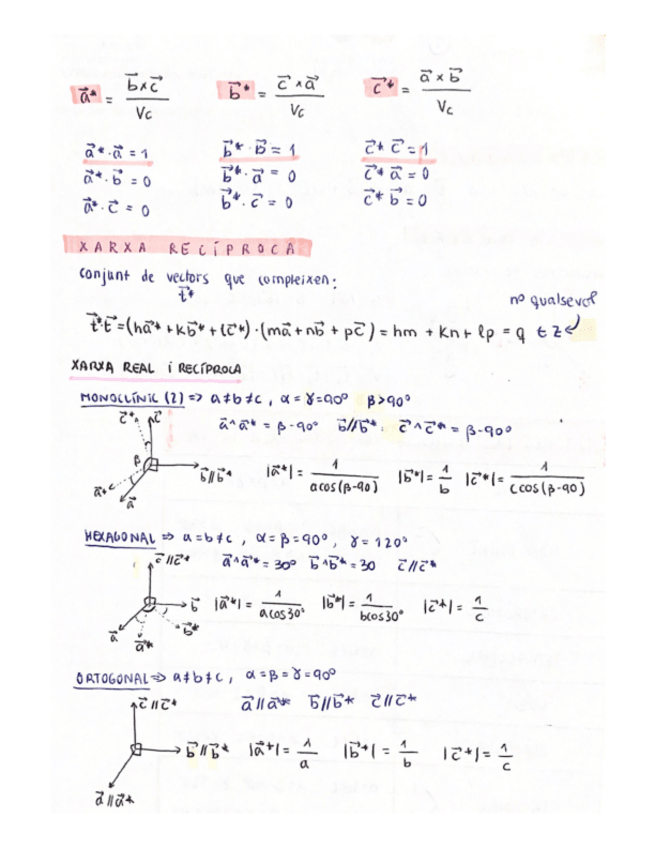 a⃗* = b⃗ x c⃗ / Vc   b⃗* = c⃗ x a⃗ / Vc   c⃗* = a⃗ x b⃗ / Vc
a⃗*· a⃗ = 1   b⃗*· b⃗ = 1   c⃗* c⃗ = 1
a⃗*· b⃗ = 0   b⃗*· a⃗ = 0   c⃗* a⃗ = 0
a⃗*· c⃗ = 0   b⃗*· c⃗ = 0   c⃗* b⃗ = 0
XARXA RECÍPROCA
conjunt de vectors que compleixen:
t⃗*
no qualsevol
t⃗*t⃗ = (ha⃗* + kb⃗* + lc⃗*) · (ma⃗ + nb⃗ + pc⃗) = hm + kn + lp = q ∈ Z
XARXA REAL i RECÍPROCA
MONOCLÍNIC (2) => a≠b≠c, α = γ = 90º β>90º
a⃗^a⃗* = β-90º b⃗//b⃗*. c⃗^c⃗* = β-90º
c⃗* c⃗
β
b⃗//b⃗*
a⃗*
a⃗
|a⃗*| = 1 / a cos(β-90) |b⃗*| = 1 / b |c⃗*| = 1 / c cos(β-90)
HEXAGONAL => a=b≠c, α=β=90º, γ=120º
c⃗//c⃗* a⃗^a⃗* = 30º b⃗^b⃗* = 30 c⃗//c⃗*
b⃗ |a⃗*| = 1 / a cos30º |b⃗*| = 1 / b cos30º |c⃗*| = 1 / c
a⃗ a⃗* b⃗*
ORTOGONAL => a≠b≠c, α=β=γ=90º
c⃗//c⃗* a⃗//a⃗* b⃗//b⃗* c⃗//c⃗*
b⃗//b⃗* |a⃗*| = 1 / a |b⃗*| = 1 / b |c⃗*| = 1 / c
a⃗//a⃗*